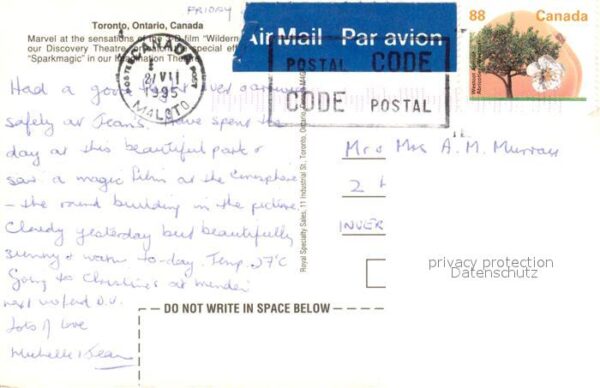 PRIORY
Toronto, Ontario, Canada
Marvel at the sensations of the 3-D film "Wildern
our Discovery Theatre, or the special eff
"Sparkmagic" in our Theatre
Air Mail Par avion
88 Canada
POSTAL CODE
CODE POSTAL
CANADA
VII
1995
MALOTO
Had a good over
safely at Jean's. Have spent the
day at this beautiful park &
saw a magic film at the Cinesphere
- the round building in the picture.
Cloudy yesterday but beautifully
sunny & warm to-day. Temp. 27°C
Going to Christine's at
next D.V.
Lots of love
Michelle & Jean
Royal Specialty Sales, 11 Industrial St., Toronto, Ontario, Canada
Mr & Mrs A. M. Murray
2
INVER
privacy protection
Datenschutz
DO NOT WRITE IN SPACE BELOW